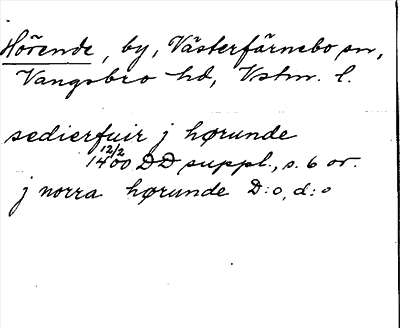 Hörende, by, Västerfärnebo sn,
Vangsbro hd, Vstm. l.
sedierfuir j hørunde
12/2 1400 DD suppl., s. 6 or.
j norra hørunde D:o, d:o